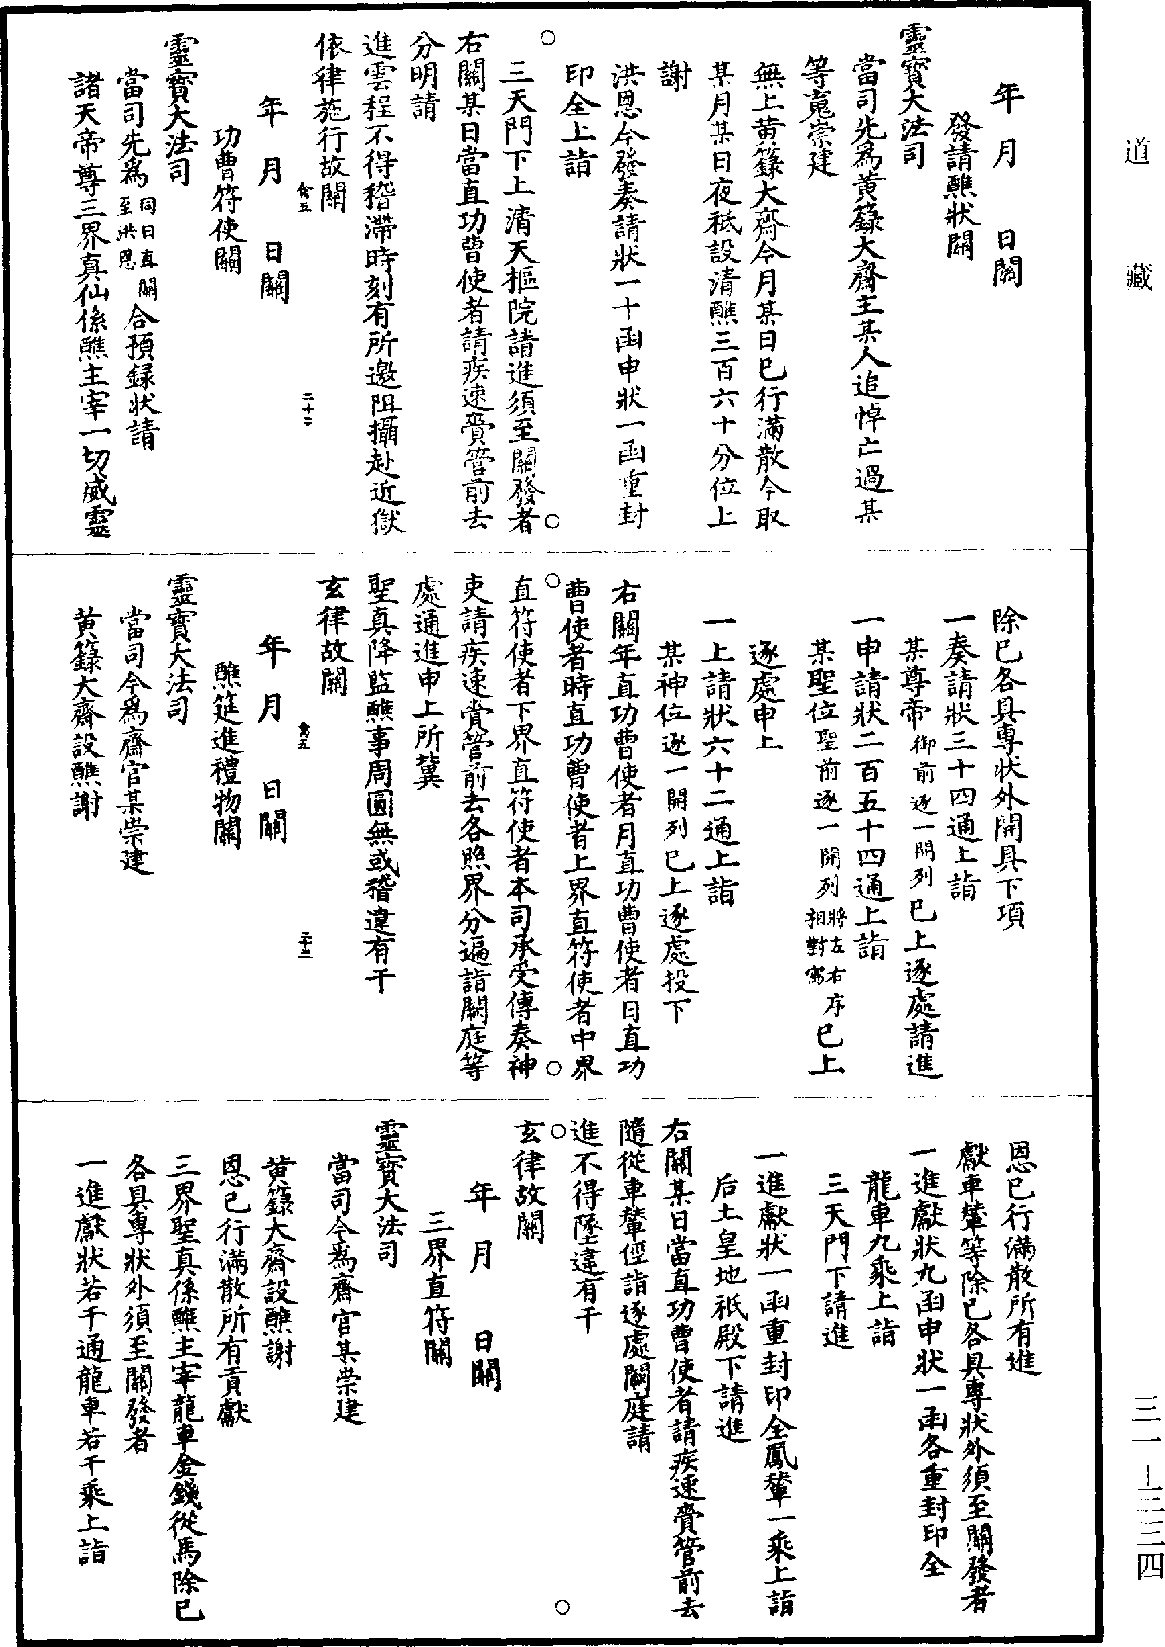 道藏
年　月　　日關
發請醮狀關
靈寶大法司
當司先爲黃籙大齋主某人追悼亡過某
等寃崇建
無上黃籙大齋今月某日已行滿散今取
某月某日夜祗設清醮三百六十分位上
謝
洪恩今發奏請狀一十函申狀一函重封
印全上詣
三天門下上清天樞院請進須至關發者
右關某日當直功曹使者請疾速賫管前去
分明請
進雲程不得稽滯時刻有所邀阻攝赴近獄
依律施行故關
年　月　　日關
功曹符使關
靈寶大法司
當司先爲同日直關至洪恩合預録狀請
諸天帝尊三界真仙係醮主宰一切威靈
除已各具專狀外開具下項
一奏請狀三十四通上詣
某尊帝御前逐一開列已上逐處請進
一申請狀二百五十四通上詣
某聖位聖前逐一開列將左右序相對寫已上
逐處申上
一上請狀六十二通上詣
某神位逐一開列已上逐處投下
右關年直功曹使者月直功曹使者日直功
曹使者時直功曹使者上界直符使者中界
直符使者下界直符使者本司承受傳奏神
吏請疾速賫管前去各照界分遍詣闕庭等
處通進申上所冀
聖真降監醮事周圓無或稽違有干
玄律故關
二十二
二十三
年　月　　日關
醮筵進禮物關
靈寶大法司
當司今爲齋官某崇建
黃籙大齋設醮謝
恩已行滿散所有進
獻車輦等除已各具專狀外須至關發者
一進獻狀九函申狀一函各重封印全
龍車九乘上詣
三天門下請進
一進獻狀一函重封印全鳳輦一乘上詣
后土皇地祇殿下請進
右關某日當直功曹使者請疾速賫管前去
隨從車輦徑詣逐處闕庭請
進不得墜違有干
玄律故關
年　月　　日關
三界直符關
靈寶大法司
當司今爲齋官某崇建
黃籙大齋設醮謝
恩已行滿散所有貢獻
三界聖真係醮主宰龍車金錢從馬除已
各具專狀外須至關發者
一進獻狀若干通龍車若干乘上詣
三一－三三四